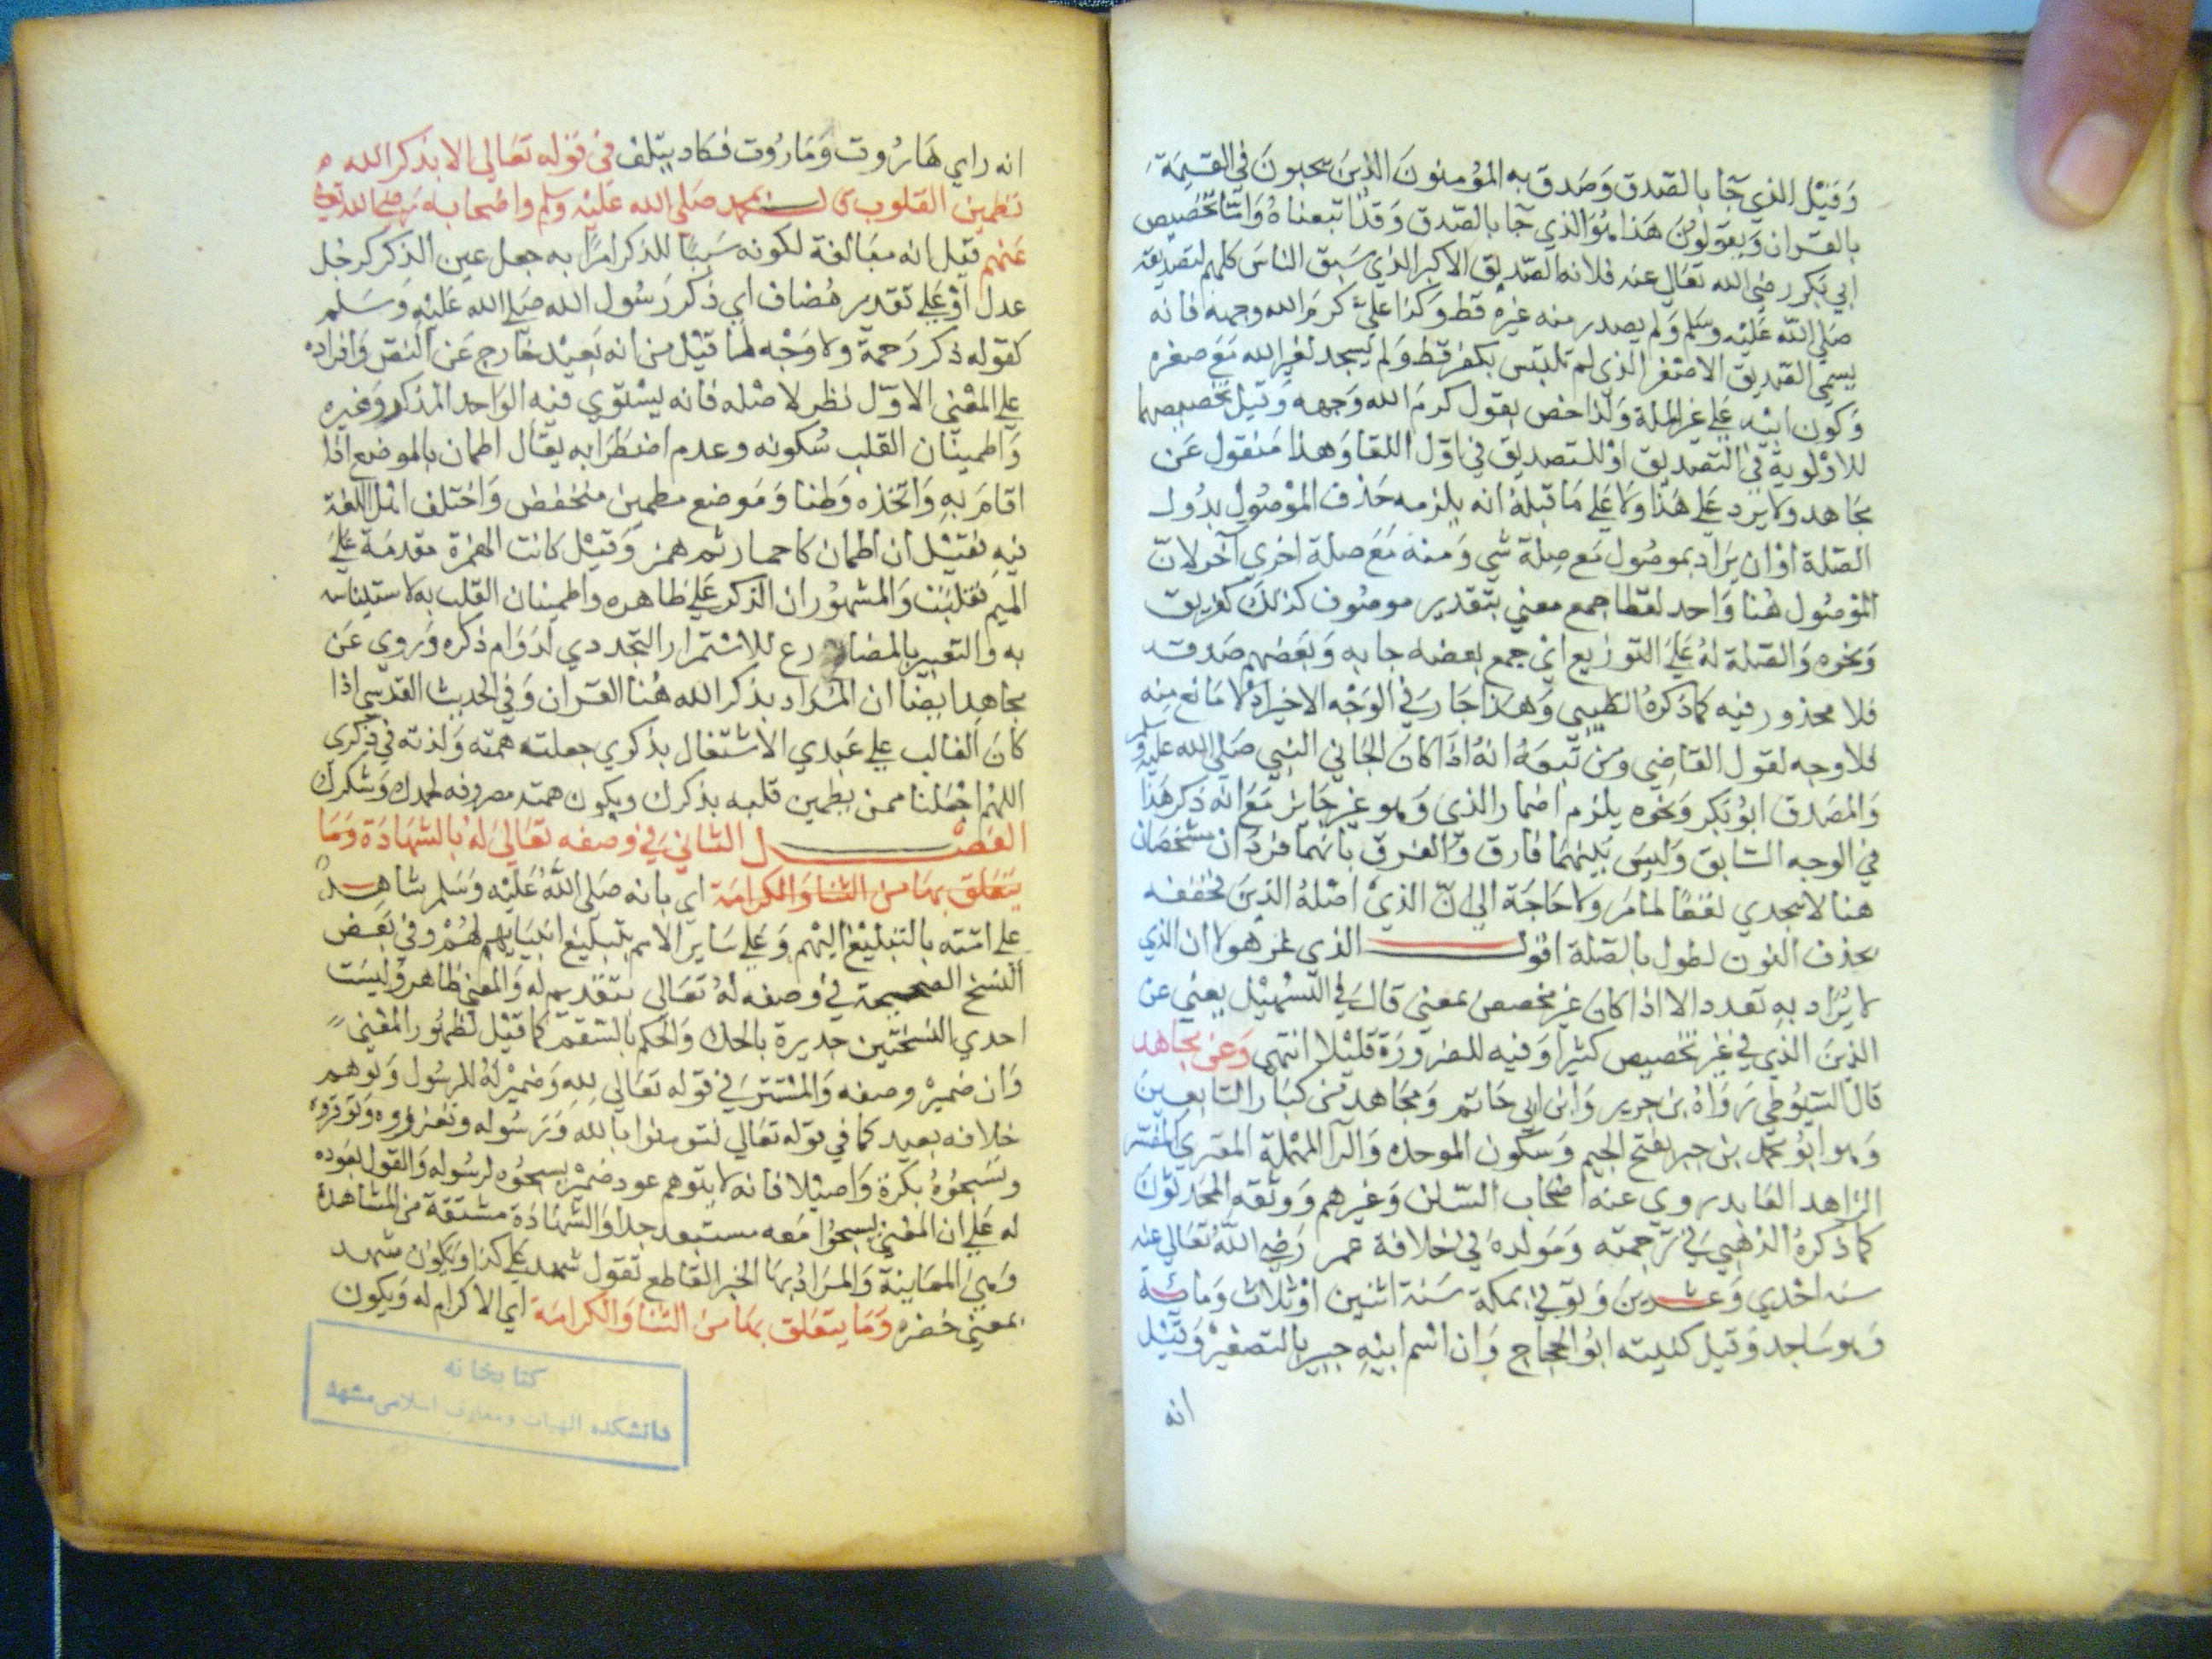 وَقيْل الذي جَا بالصّدق وَصَدق به المؤمنونَ الذِينَ يجيونَ في القيمَة
بالقران وَيقولوُن هَذا هوَ الذي جَا بالصّدق وَقد اتبعناهُ وَامّا تخصيص
ابي بَكر رضي الله تعَالى عنه فلانه الصّديق الاكبر الذي سَبق الناسَ كلهم لتصديقه
صَلى الله عَليْه وسَلم وَلم يصدر منه غيره قط وَكذا عليّ كرمَ الله وجهه فانه
يسمي الصّديق الاصْغر الذي لم تلبّس بكفر قط وَلم يسجد لغير الله مَع صغره
وَكون ابيْه عَلى غير الملة وَلذا خص بقول كرمَ الله وَجهه وَقيل تخصيصهما
للاوْلوية في التصديق اوْ للتصديق في اوّل اللقا وَهذا مَنقول عَن
مجاهد وَلا يَرد عَلى هَذا وَلا عَلى مَا قبلهُ انه يلزمه حَذف الموْصُول بدُون
الصّلة اوْ ان يَراد بموصُول مَع صِلة شي وَمنه مَعَ صلة اخري آخر لانّ
الموْصُول هُنا وَاحد لفظا جمع معني بتقدير موصُوف كذلكَ كفريق
وَنحوه وَالصّلة لهُ عَليَ التوزيع ايْ جمع بعضه جا به وَبَعْضهم صَدق
فلا محذور فيه كما ذكرهُ الطيبي وَهَذا جَار في الوَجْه الاخير اذ لا مَانع منه
فلا وجه لقول القاضي ومنْ تَبعَهُ انهُ اذا كانَ الجَائي النبي صَلى الله عليْه وسلم
وَالمصَدق ابوُ بَكر وَنحوه يلزم اضمار الذي وَهو غير جَايز مَعَ انه ذكر هَذا
في الوجه السّابق وَليسَ بَيْنهمَا فارق وَالفرق بانهما فردَان متشخصان
هنا لا يجدي نفعًا لما مَر وَلا حَاجَة الى انّ الذيْ اصْلهُ الذينَ فخفف
بحذف النون لطول بالصّلة اقول الذي غر هولا ان الذي
لا يُرَاد به تعدد الا اذا كان غير مخصص بمعني قال في التسْهيْل يغني عن
الذينَ الذي في غير تخصيص كثيرا وَفيه للضرورَة قليْلا انتهى وَعَن مجاهد
قالَ السّيوُطي رَوَاهُ بن جرير وَابن ابي حَاتم وَمجَاهد من كبَار التابعينَ
وَهو ابوُ محمّد بن جبر بفتح الجيم وَسكون الموحده وَالرآ المهْملة المقري المفسّر
الزاهد العَابد روي عنه اصْحَاب السّنن وَغيرهم وَوثقه المحَدثوُن
كما ذكرهُ الذهبي في تَرجمته وَمَولدهُ في خلافة عمر رَضي اللّهُ تعَالى عنه
سَنه احْدي وَعشرينَ وَتوُفي بمكة سَنة اثنين اوْثلاث وَماية
وَهوسَاجد وَقيل كنيته ابوُ الحجاج وَان اسْم ابيْهِ جبير بالتصغيرْ وَقيْل
انه
انه راي هَارُوت وَمَارُوت فكاد يتلف في قوْله تعَالى الا بذكر الله
تطمين القلوب قال بمحمد صَلى الله عَليْه وسلم واصْحابه رضي الله تعالى
عَنهم فقيل انه مبَالغة لكونه سَببًا للذكر امرًا به جعل عين الذكر كرجُل
عدل اوْ عَلى تقدير مُضاف اي ذكر رَسُول الله صَلى الله عَليْهِ وَسَلم
كقوله ذكر رَحمة وَلا وَجْه لما قيْل من انه بَعيْد خارج عَن النص وَافراده
على المعْني الاوّل نظر لاصْله فانه يسْتوَي فيْه الوَاحد المذكر وَغيره
وَاطمينان القلب سُكونه وعدم اضطرَابه يقال اطمان بالموضع اذا
اقامَ بهِ وَاتخذه وَطنا وَمَوضع مطمين منخفض وَاختلف اهل اللغة
فيْه فقيْل ان اطمان كاحمار ثم همز وَقيْل كانت الهمزة مقدمَة عَلى
الميم فقلبَت وَالمشهوُر ان الذكر عَلى ظاهره واطمينان القلب به لاستيناسه
به وَالتعبير بالمضارع للاسْتمرار التجددي لدَوَام ذكره وَروي عَن
مجاهد ايضًا ان المرَاد بذكر الله هُنا القرَان وَفي الحديث القدسي اذا
كانَ الغالب عَلى عَبدي الاشتغال بذكري جعلت همته وَلذته في ذكري
اللهُم اجْعَلنا ممن يطمين قلبه بذكرك ويكون همته مصروفه لحمدك وَشكرك
الفصْل الثاني في وَصفه تعَالى لهُ بالشهَادَة وَمَا
يتعَلق بهَا من الثنا وَالكرامَة اي بانه صَلى اللّهُ عَليْه وَسَلم شاهدًا
على امّته بالتبليْغ اليْهم وَعَلى سَاير الامم بتبليْغ انبيَايهم لهُمْ وفي بَعْض
النسَخ الصحيحة في وَصفه لهُ تعَالى بتقديم له وَالمعْني ظاهر وَليسَت
احدي النسْختين جديرة بالحك وَالحكم بالسّقم كما قيْل لظهوُر المعْني
وَان ضميرْ وصفه وَالمسْتتر في قوله تعَالى للهِ وَضميْر لهُ للرسُول وَتوهم
خلافه بعيد كما في قوَله تعَالى لتؤمنوا بالله وَرَسُوله وتعزروه وَتوَقروه
وَتسَبحوُهُ بكرَة وَاصيْلا فانه لا يتوهم عود ضميْر يسبحوُه لرسُوله وَالقول بعَوده
له عَلى ان المعْني يسبحوُا مَعه مستبعد جدا وَالشهَادَة مشتقة من المشاهَدة
وَهيَ المعَاينة وَالمرَاد بهَا الخبر القاطع تقول شهد عَلى كذا وَيكون شهد
بمعني حَضره وَمَا يتعَلق بهَا من الثنا وَالكرامَة اي الاكرام له وَيكون
كتابخانه
دانشكده الهيات ومعارف اسلامى مشهد